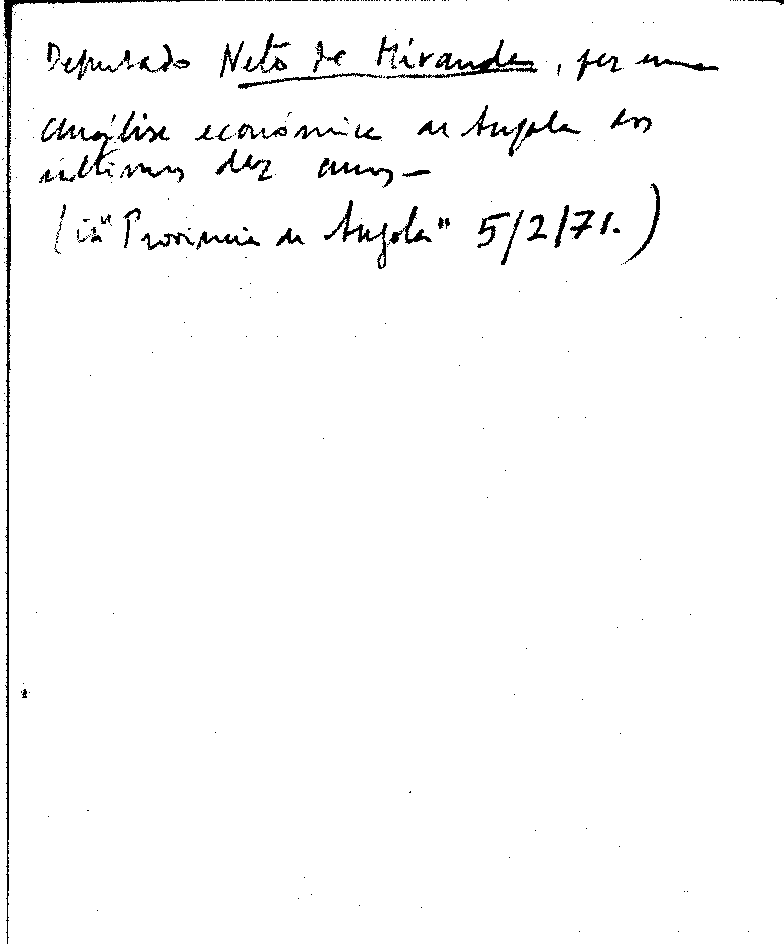 Deputado Neto de Miranda, fez uma
análise económica de Angola dos
últimos dez anos —
(in "Provincia de Angola" 5/2/71.)